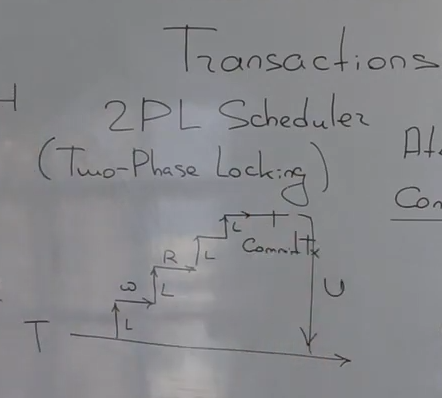 Transactions
H
2PL Scheduler
(Two-Phase Locking)
At
Con
L
Commit Tx
R
L
W
L
U
L
T